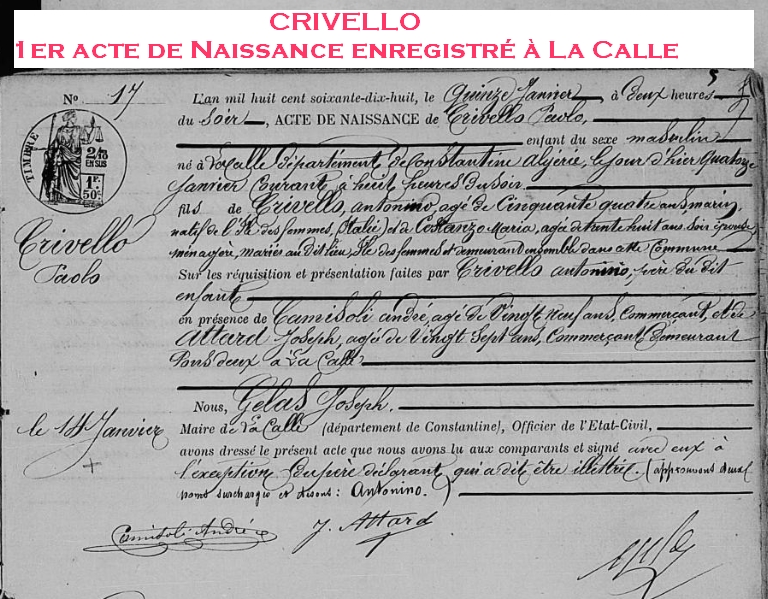 CRIVELLO
1ER ACTE DE NAISSANCE ENREGISTRÉ À LA CALLE
5
No 17 L'an mil huit cent soixante-dix-huit, le Quinze Janvier, à deux heures
du soir, ACTE DE NAISSANCE de Crivello Paolo,
enfant du sexe masculin
né à La Calle département de Constantine Algérie, le jour d'hier Quatorze
Janvier Courant à huit heures du soir
fils de Crivello, antonino, agé de Cinquante quatre ans, marin,
natif de l'Ile des femmes, (Italie) et de Costanzo Maria, agée de trente huit ans, son épouse
ménagère, mariés au dit lieu, Ile des femmes et demeurant ensemble dans cette Commune
Sur les réquisition et présentation faites par Crivello antonino, père du dit
enfant
en présence de Camisoli andré, agé de Vingt neuf ans, Commerçant, et de
Attard Joseph, agé de Vingt Sept ans, Commerçant demeurant
tous deux à La Calle
Nous, Gelas Joseph.
Maire de La Calle (département de Constantine), Officier de l'Etat-Civil,
avons dressé le présent acte que nous avons lu aux comparants et signé avec eux à
l'exeption du père déclarant qui a dit être illettré. (approuvons deux
noms surchargés et disons: Antonino.)
TIMBRE
EN SUS
1F.
50c
Crivello
Paolo
le 14 Janvier
Camisoli André
J. Attard